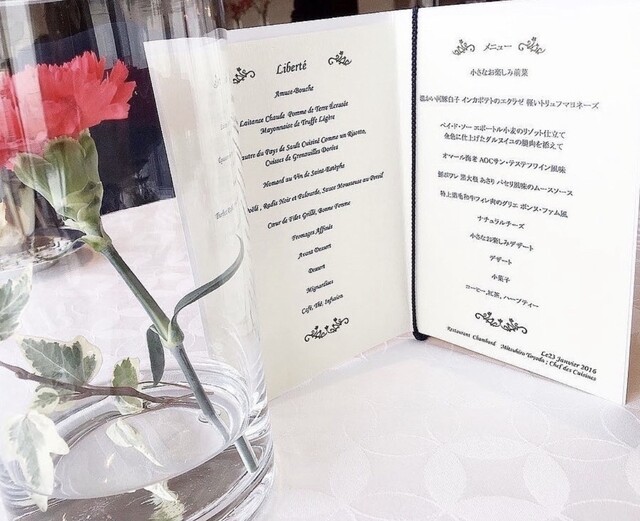 Liberté
Amuse-Bouche
Laitance Chaude Pomme de Terre Écrasée
Mayonnaise de Truffe Légère
autre du Pays de Sault Cuisiné Comme un Risotto,
Cuisses de Grenouilles Dorées
Homard au Vin de Saint-Estèphe
Radis Noir et Palourde, Sauce Mousseuse au Persil
Cœur de Filet Grillé, Bonne Femme
Fromages Affinés
Avant Dessert
Dessert
Mignardises
Café, Thé, Infusion
メニュー
小さなお楽しみ前菜
温かい河豚白子 インカポテトのエクラゼ 軽いトリュフマヨネーズ
ペイ・ド・ソー エポートル小麦のリゾット仕立て
金色に仕上げたグルヌイユの腿肉を添えて
オマール海老 AOCサン・テステフワイン風味
鮃ポワレ 黒大根 あさり パセリ風味のムースソース
特上黒毛和牛フィレ肉のグリエ ボンヌ・ファム風
ナチュラルチーズ
小さなお楽しみデザート
デザート
小菓子
コーヒー,紅茶, ハーブティー
Le23 Janvier 2016
Restaurant Chambord Mitsuhiro : Chef des Cuisines